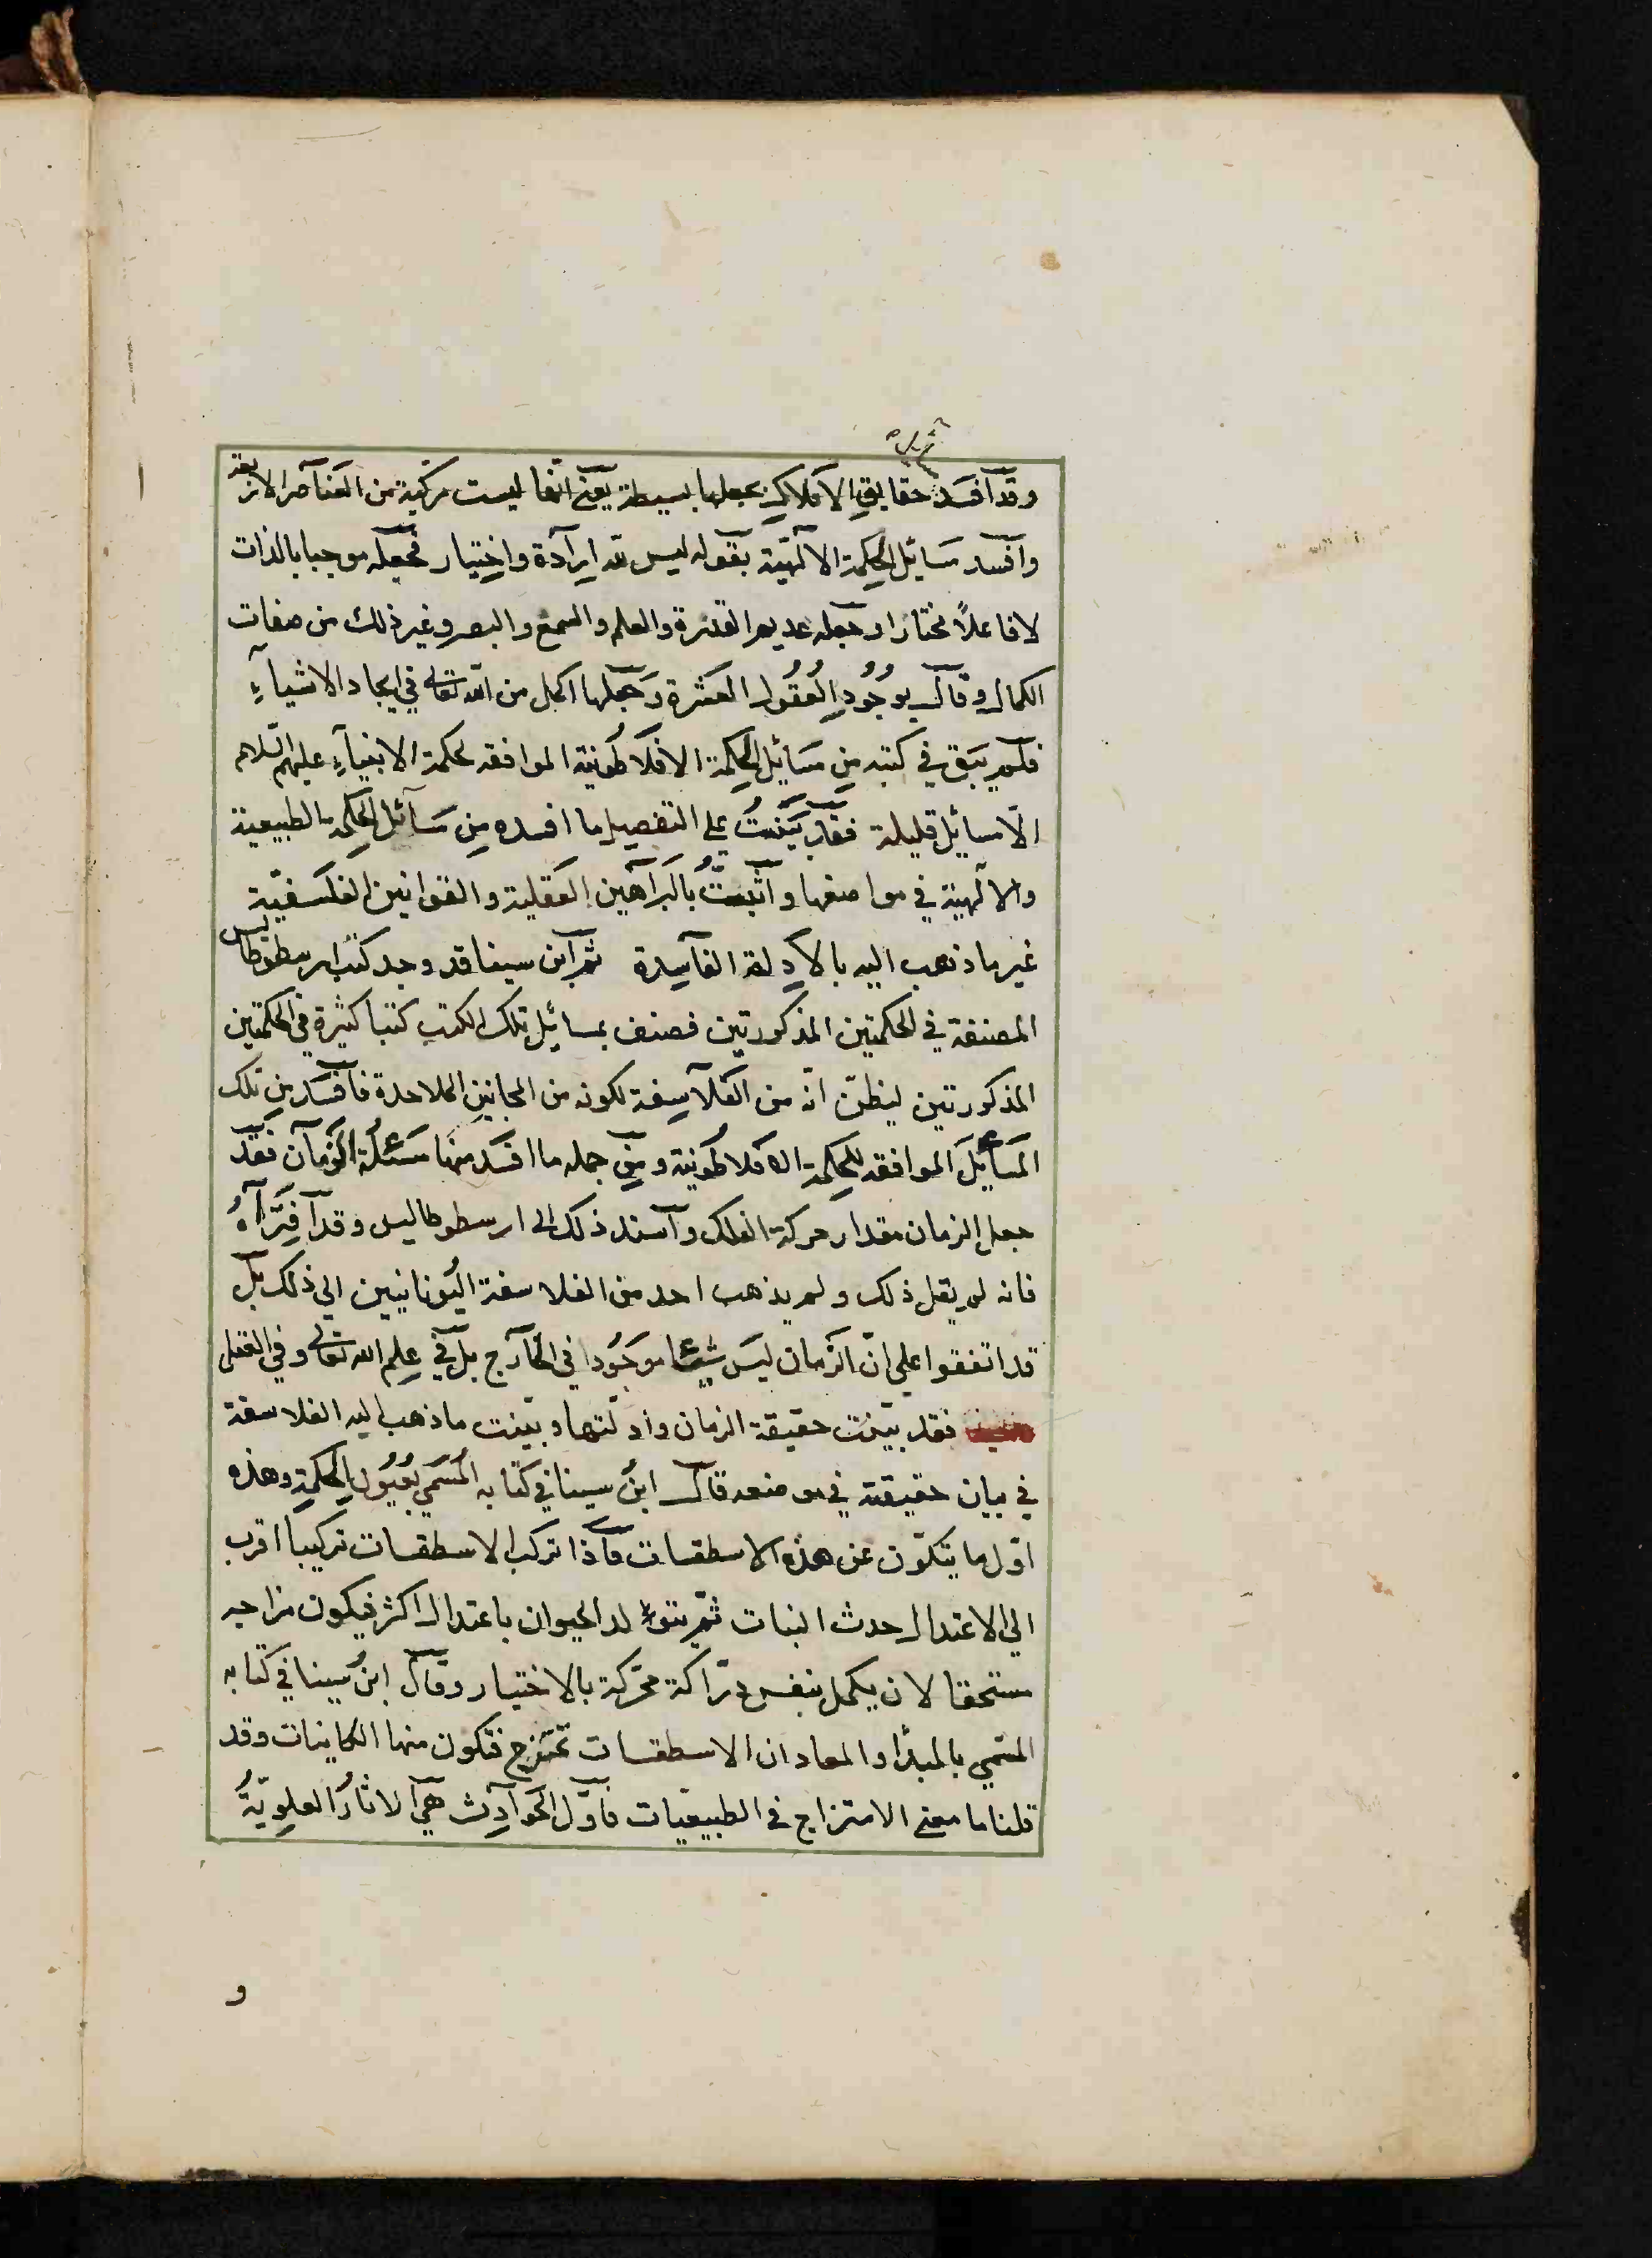 وقد آفسد حقايق الافلاك بجعلها بسيطة يعني انها ليست مركبة من العناصر الاربعة
وآفسد مسائل الحكمة الالهية بقوله ليس لله ارادة واختيار فجعله موجبا بالذات
لا فاعلاً مختارا وجعله عديم القدرة والعلم والسمع والبصر وغير ذلك من صفات
الكمال وقال بوجُودِ العُقُول العشرة وجعلها اكمل من الله تعالى في ايجاد الاشياءِ
فلم يبق في كتبه من مسائل الحكمة الافلاطونية الموافقه لحكمة الانبياءِ عليهم السلام
الا مسائل قليلة فقد بينتُ على التفصيل ما افسده من مسائل الحكمة الطبيعية
والالهية في مواضعها واثبتتُ بالبراهين العقلية والقوانين الفلسفيّة
غير ما ذهب اليه بالادلة الفاسِدة ثم ابن سينا قد وجد كتب ارسطوطاليس
المصنفة في الحكمتين المذكورتين فصنف بمسائل تلك الكتب كتبا كثيرة في الحكمتين
المذكورتين ليظنّ انّه من الفلاسِفة لكونه من المجانين الملاحدة فآفسد من تلك
المسآئل الموافقه للحكمة الافلاطونية ومن جمله ما افسد منها مسئلة الزمان فقد
جعل الزمان مقدار حركة الفلك وآسند ذلك الى ارسطوطاليس وقد آفترَاهُ
فانه لم يقل ذلك ولم يذهب احد من الفلاسفة اليُونانيين الى ذلك بل
قد اتفقوا على انّ الزمان ليس شيئا موجُودا في الخارج بل في علم الله تعالى وفي العقل
فقد بيّنت حقيقة الزمان وادلتها وبيّنت ما ذهب اليه الفلاسفة
في بيان حقيقته في موضعه قال ابنُ سينا في كتابه المُسمي بعُيُون الحكمة وهذه
اوّل ما يتكوّن عن هذه الاسطقسات فآذا تركب الاسطقسات تركيبا اقرب
الى الاعتدال حدث النبات ثم يتولد الحيوان باعتدال اكثر فيكون مزاجه
مستحقا لان يكمل بنفس درّاكة محرّكة بالاختيار وقال ابنُ سينا في كتابه
المسمي بالمبدُا والمعاد ان الاسطقسات تمتزج فتكون منها الكاينات وقد
قلنا ما معنى الامتزاج في الطبيعيّات فاوّل الحوادِث هي الاثارُ العلِويّةُ
و